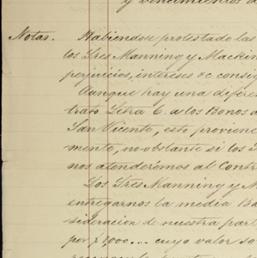 y vencimientos d
Notas. Habiendose protestado las
los Sres Manning y Mackin
perjuicios, intereses &c consig
Aunque hay una difere
trato Letra C. a los Bonos d
San Vicente, esto proviene
mento, no obstante si los S
nos atenderémos al Contr
Los Sres Manning y M
entregarnos la media Ba
sideracion de nuestra part
por $1,900 ... cuyo valor so